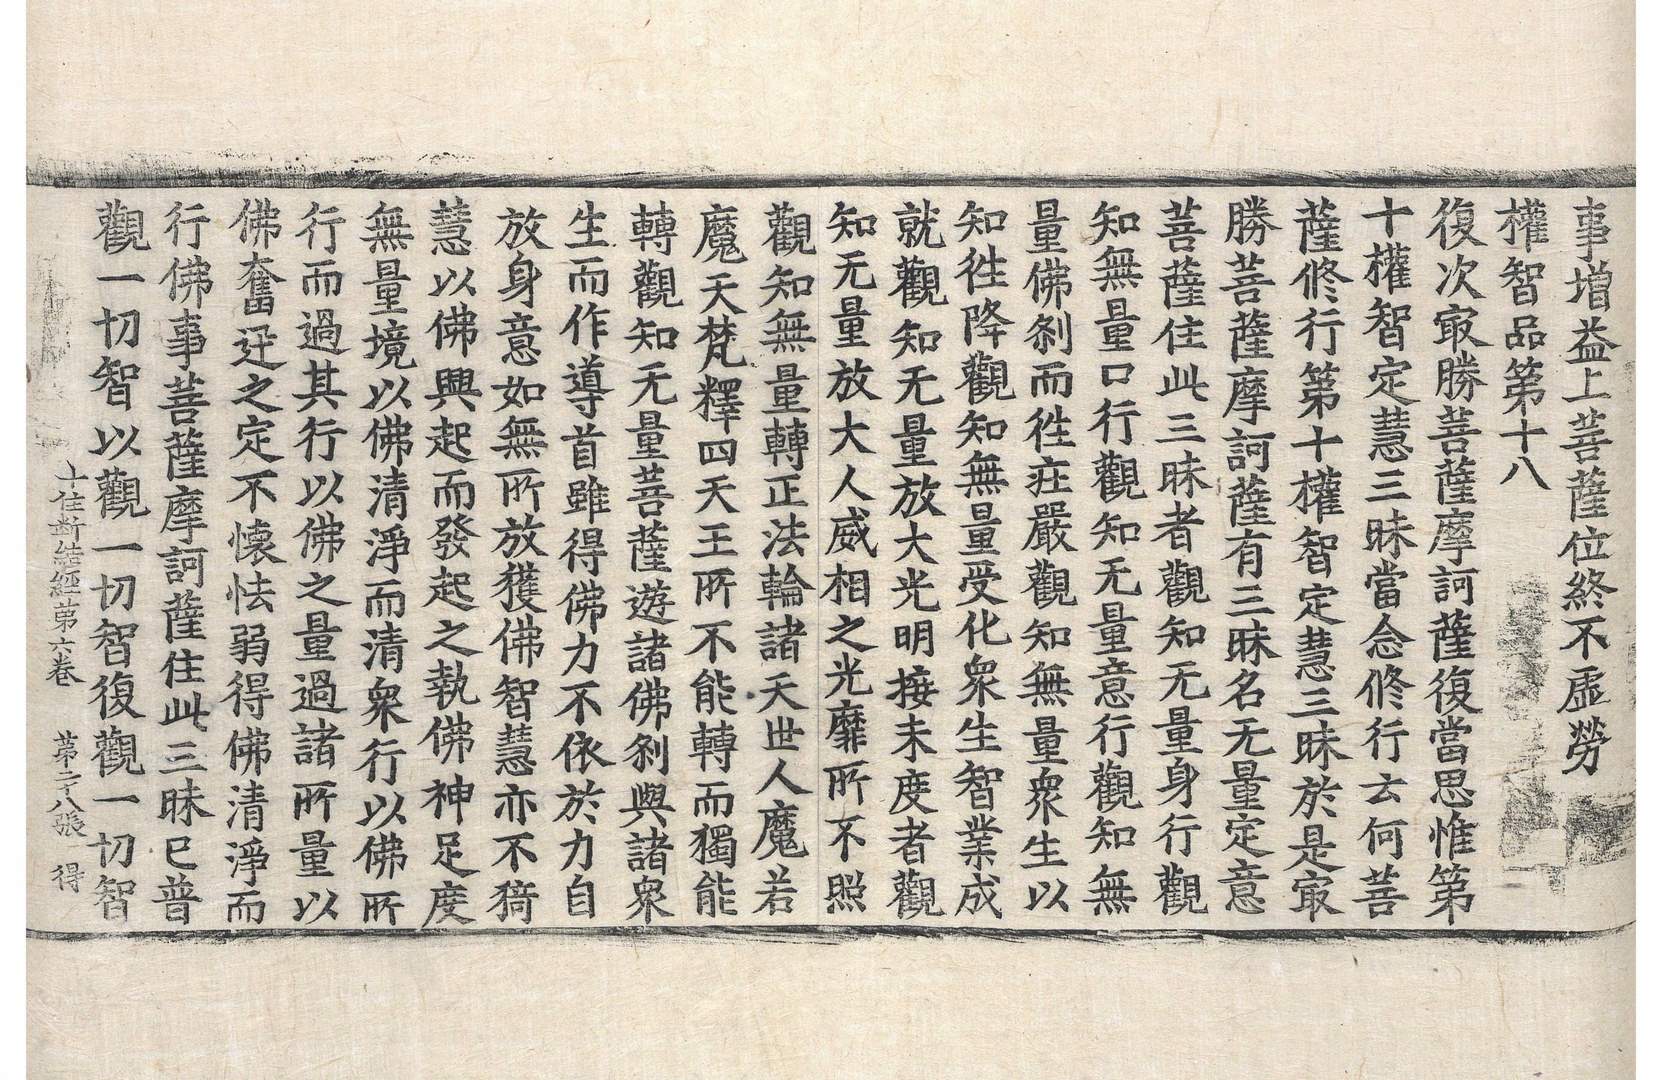 事增益上菩薩位終不虛勞
權智品第十八
復次㝡勝菩薩摩訶薩復當思惟第
十權智定慧三昧當念修行云何菩
薩修行第十權智定慧三昧於是㝡
勝菩薩摩訶薩有三昧名无量定意
菩薩住此三昧者觀知无量身行觀
知無量口行觀知无量意行觀知無
量佛刹而徃莊嚴觀知無量衆生以
知徃降觀知無量受化衆生智業成
就觀知无量放大光明接未度者觀
知无量放大人威相之光靡所不照
觀知無量轉正法輪諸天世人魔若
魔天梵釋四天王所不能轉而獨能
轉觀知无量菩薩遊諸佛刹與諸衆
生而作導首雖得佛力不依於力自
放身意如無所放獲佛智慧亦不猗
慧以佛興起而發起之執佛神足度
無量境以佛清淨而清衆行以佛所
行而過其行以佛之量過諸所量以
佛奮迅之定不懷怯弱得佛清淨而
行佛事菩薩摩訶薩住此三昧已普
觀一切智以觀一切智復觀一切智
十住斷結經第六卷 第二十八張 得